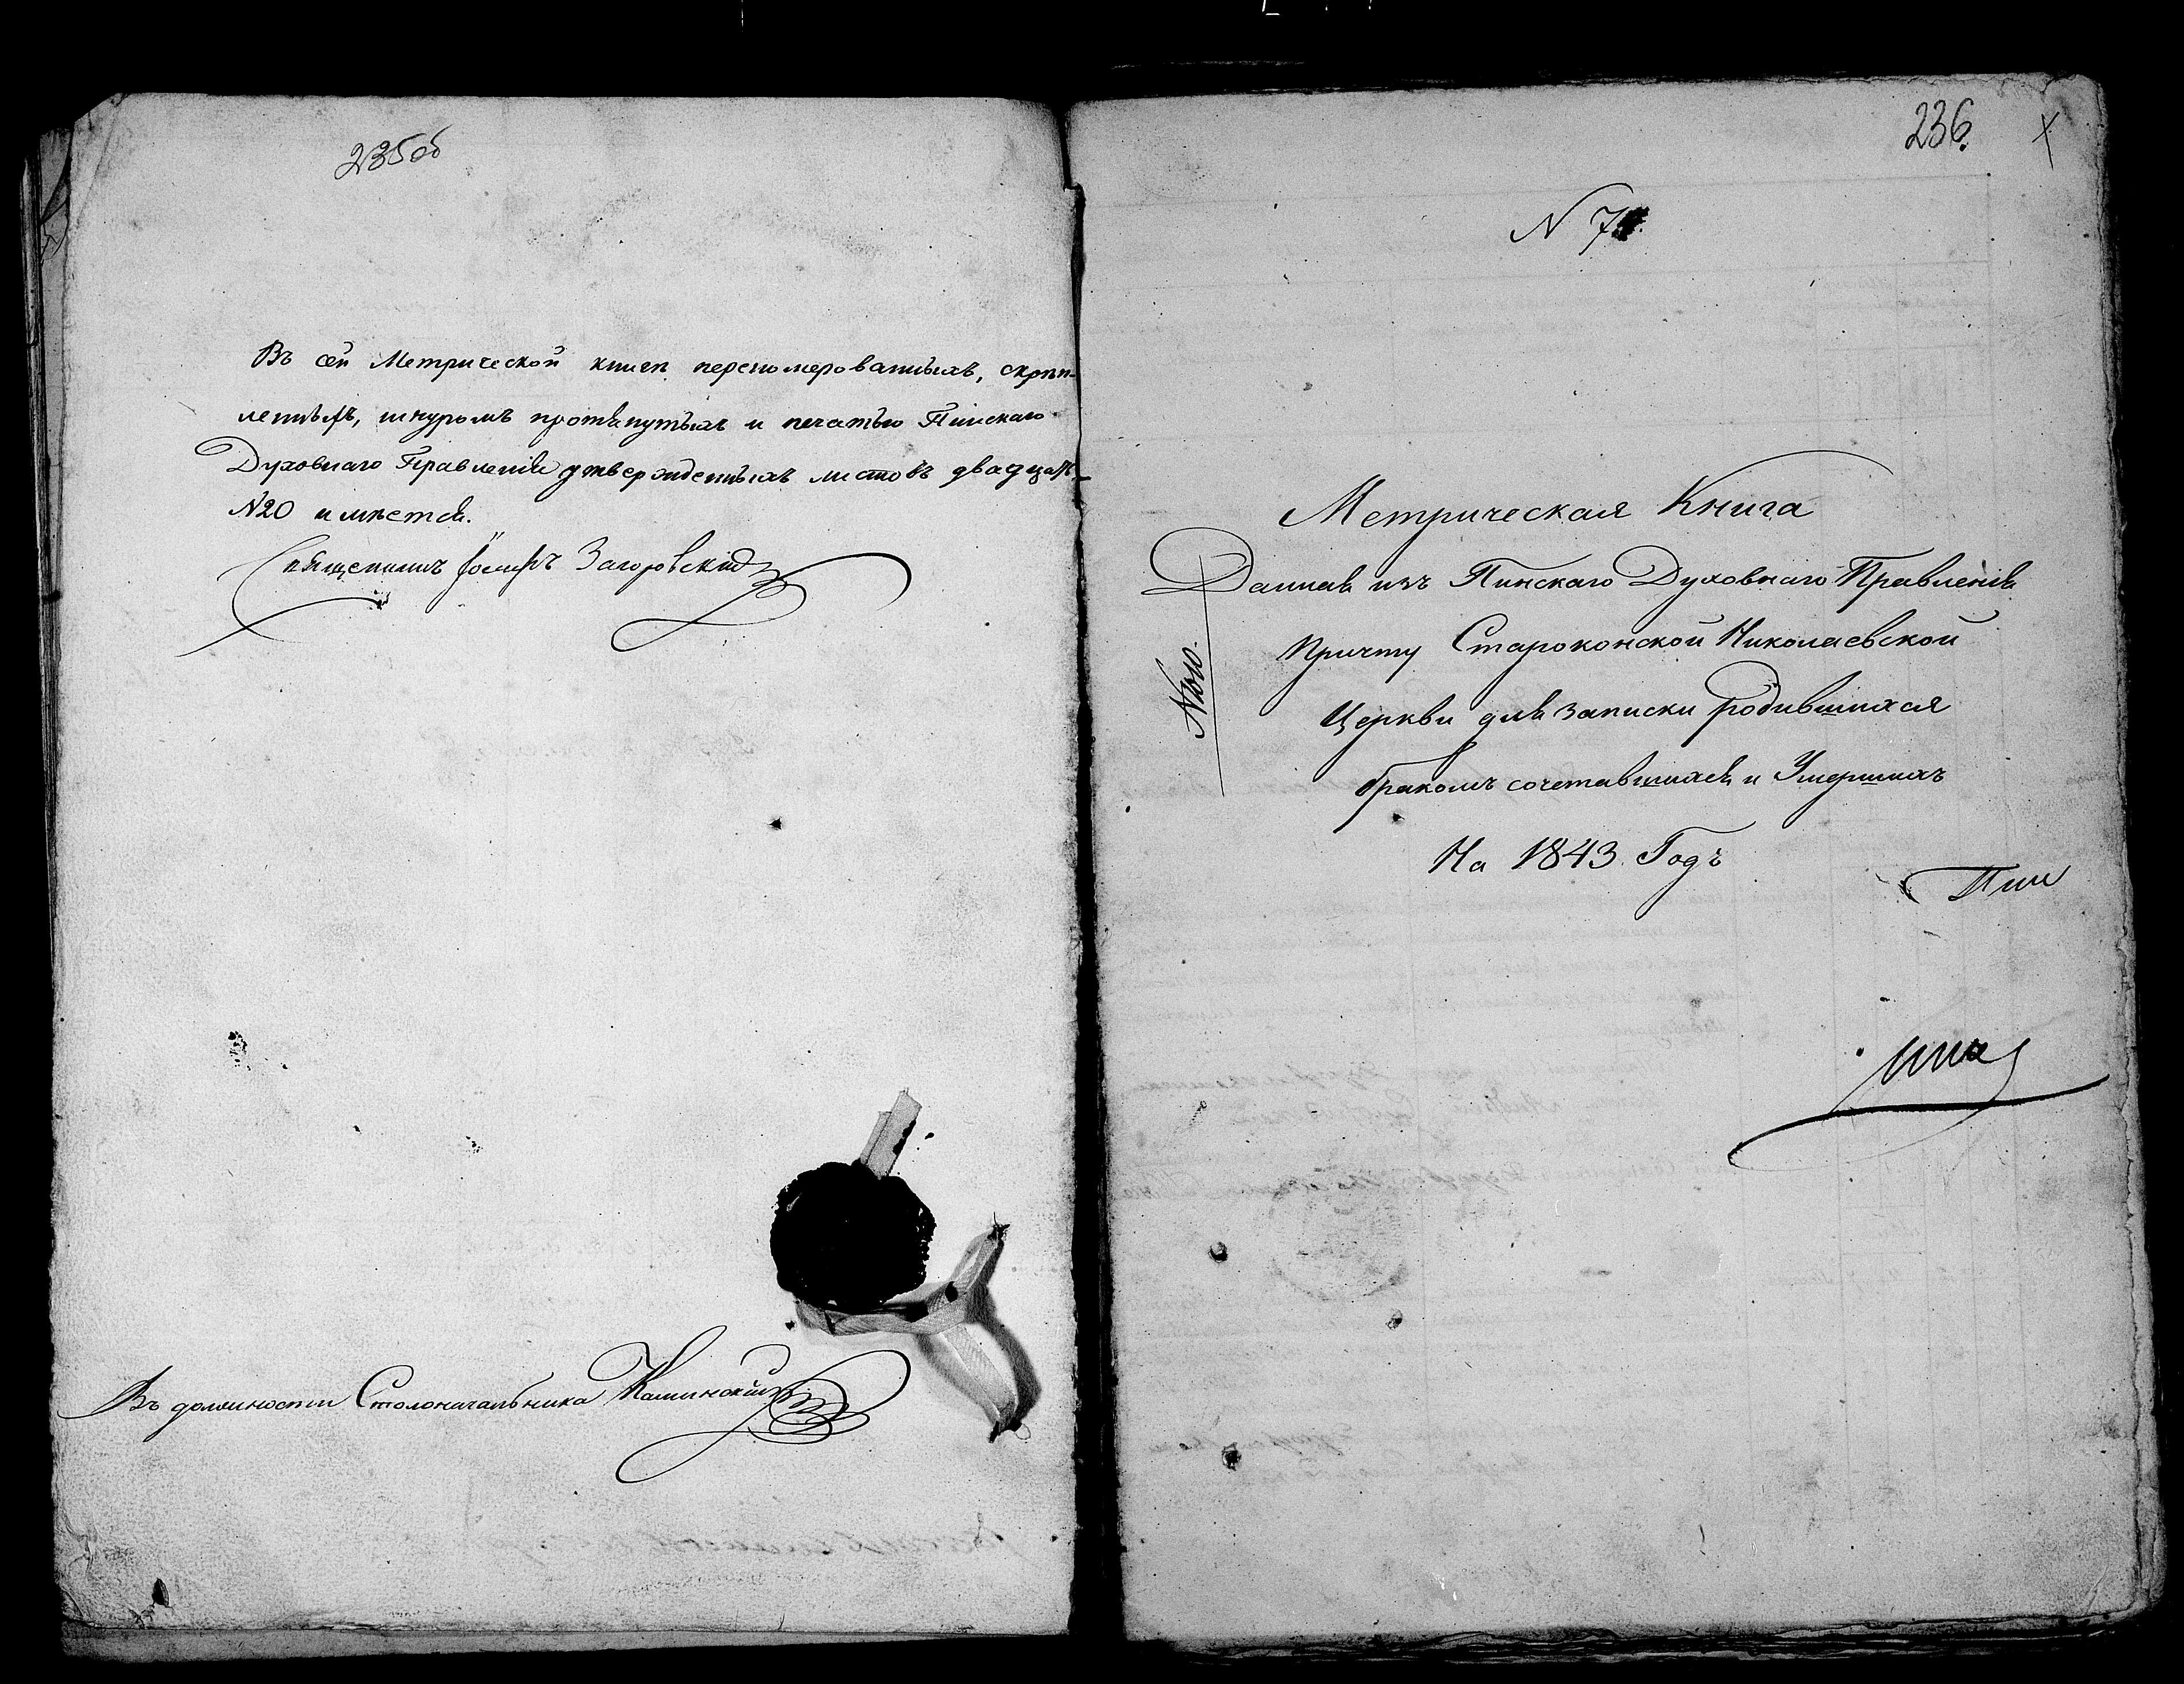 235об
Въ сей Метрической книгѣ перенумерованныхъ, скрѣп-
ленныхъ, шнуромъ протянутыхъ и печатью Пинскаго
Духовнаго Правленія утвержденныхъ листовъ двадцать
N20 имѣется.
Священникъ Іосифъ Загоровскій
Въ должности Столоначальника Каминскій
236.
N 7
Метрическая Книга
Данная изъ Пинскаго Духовнаго Правленія
Причту Староконской Николаевской
Церкви для записки родившихся
бракомъ сочетавшихся и Умершихъ
На 1843 Годъ
Пин